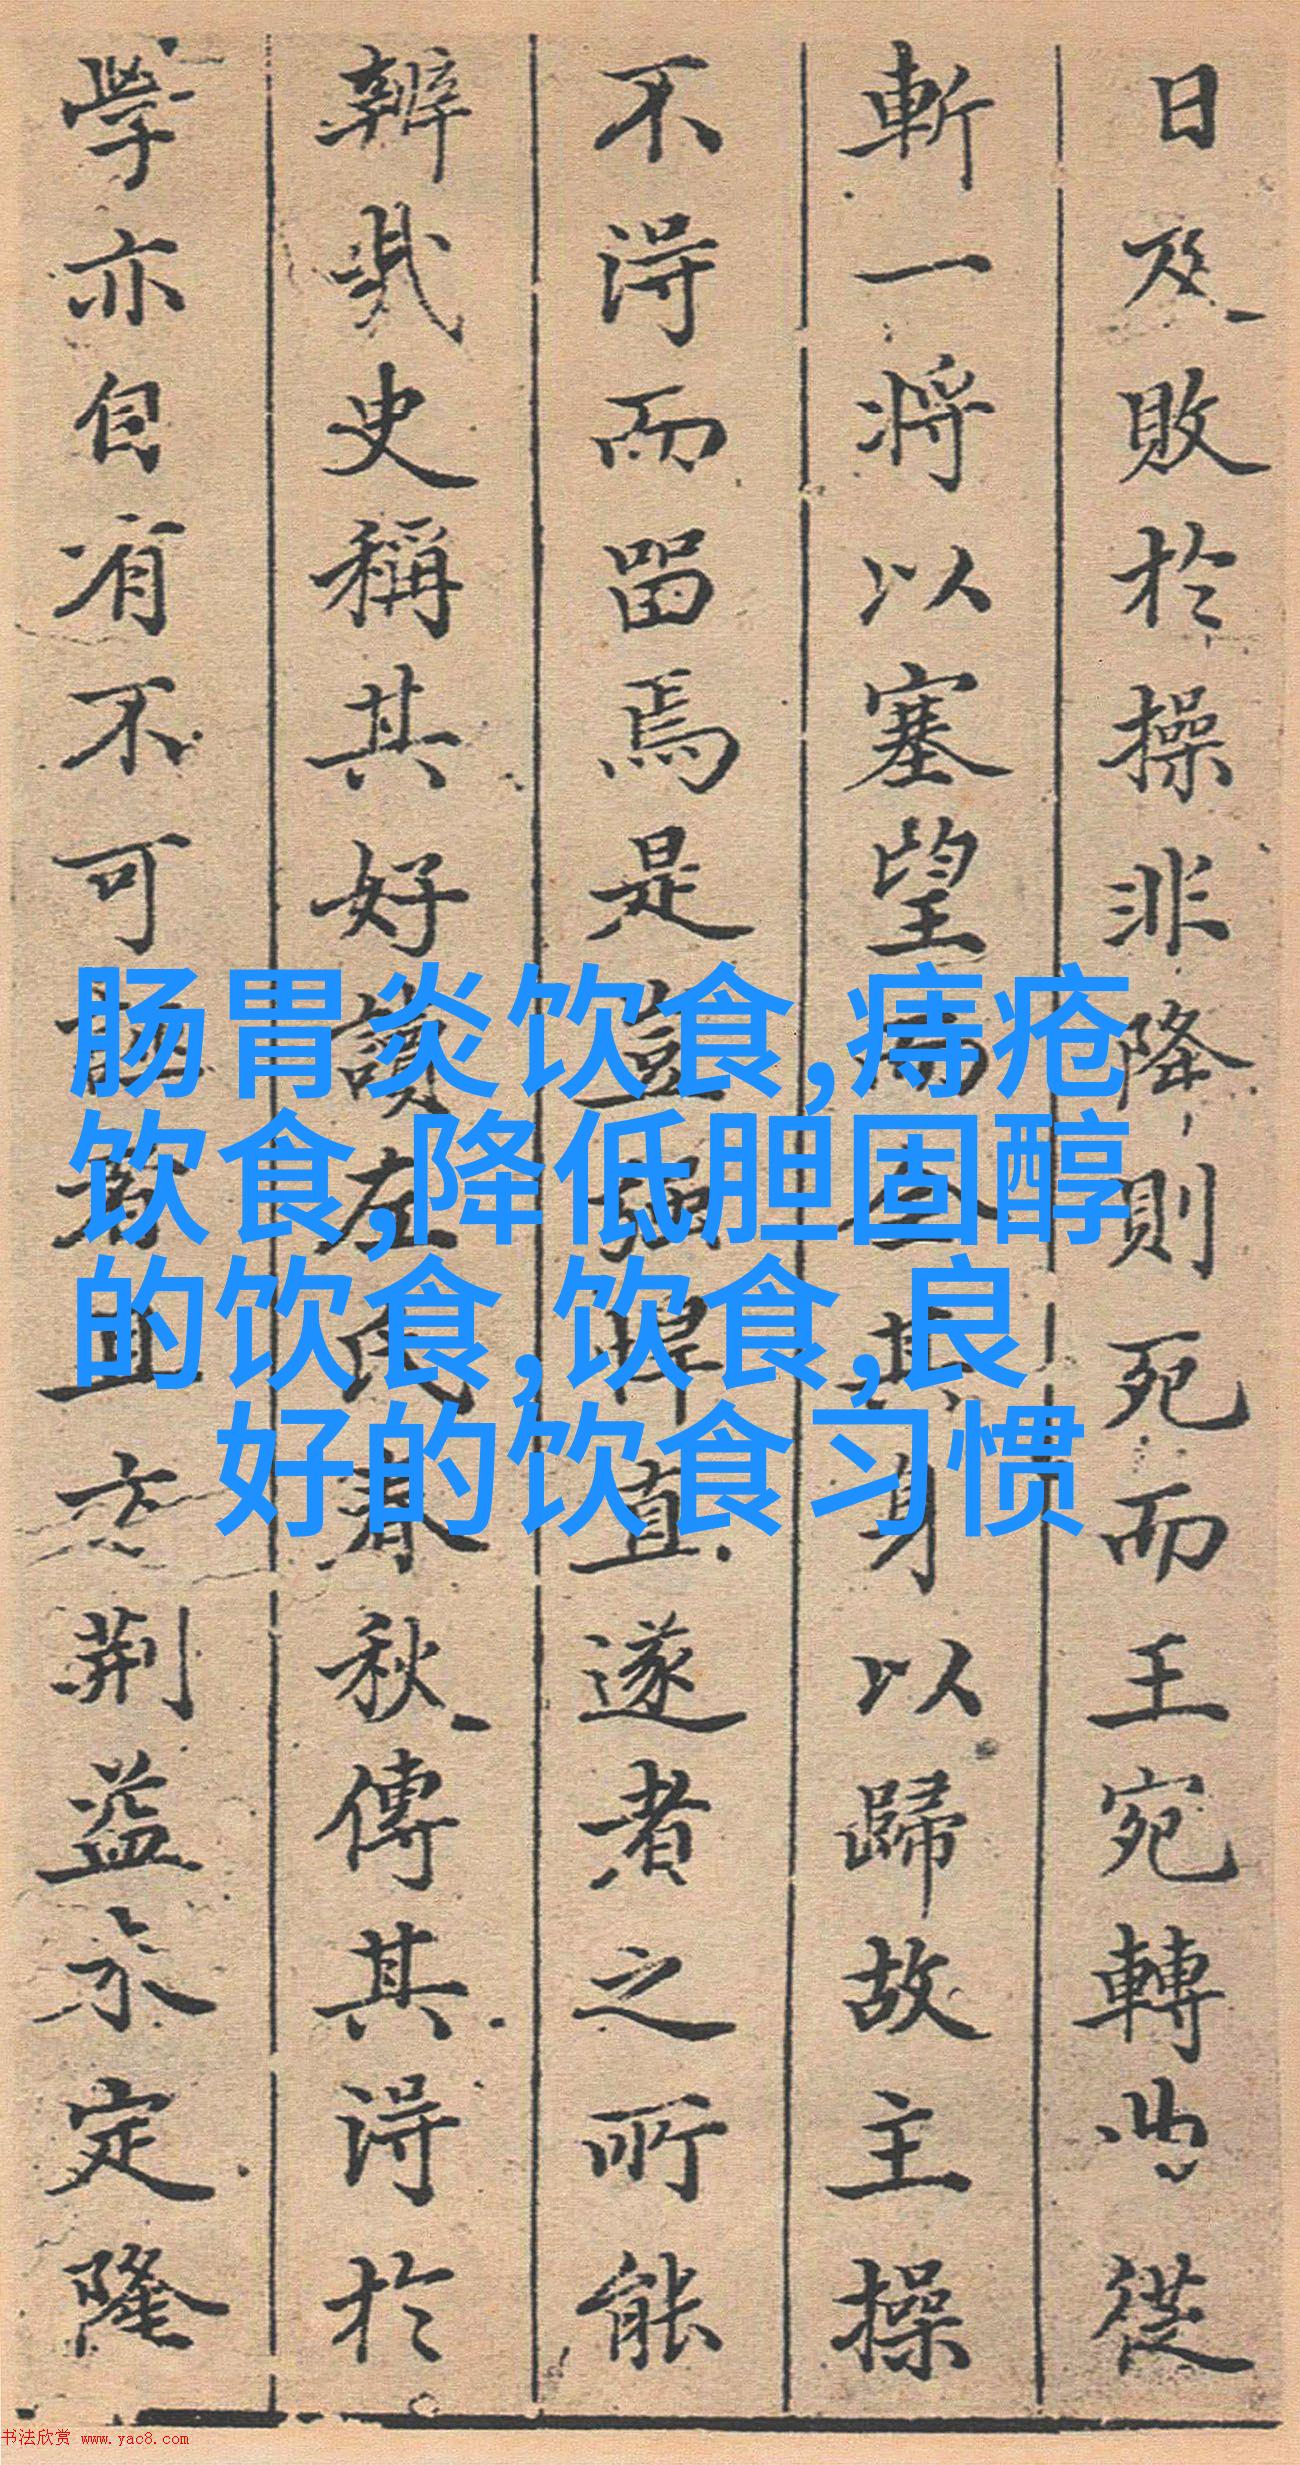 日及敗於操非降則死而王宛轉曲從
斬一將以塞望全其身以歸故主操
不得而留焉是豈強悍直遂者之所能
辨哉史稱其好讀左氏春秋傳其得於
學亦自有不可誣者且方荊益未定隆
肠胃炎饮食,痔疮
饮食,降低胆固醇
的饮食,饮食,良
好的饮食习惯
书法欣赏 www.yac8.com